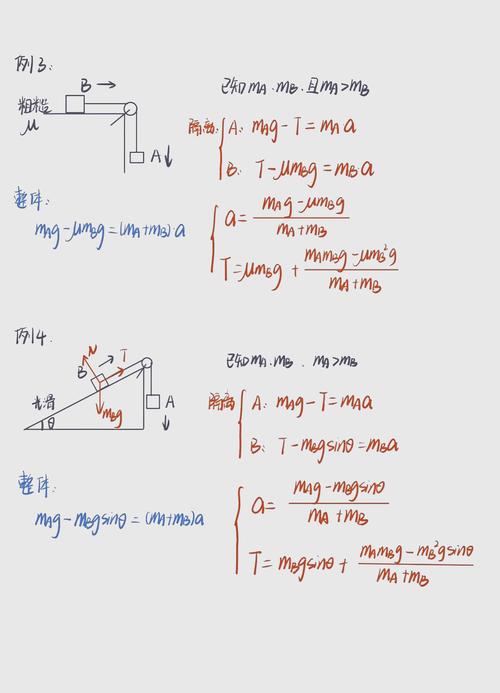 例3:
B →
已知mA、mB、且mA>mB
粗糙
μ
A↓
隔离: A: mAg - T = mA a
B: T - μmBg = mB a
整体:
mAg - μmBg = (mA+mB)·a
a = (mAg - μmBg)/(mA+mB)
T = μmBg + (mAmBg - μmB²g)/(mA+mB)
例4.
已知mA、mB、mA>mB
N
T
B
A
mBg
光滑
θ
隔离 A: mAg - T = mAa
B: T - mBgsinθ = mBa
整体:
mAg - mBgsinθ = (mA+mB)a
a = (mAg - mBgsinθ)/(mA+mB)
T = mBgsinθ + (mAmBg - mB²gsinθ)/(mA+mB)